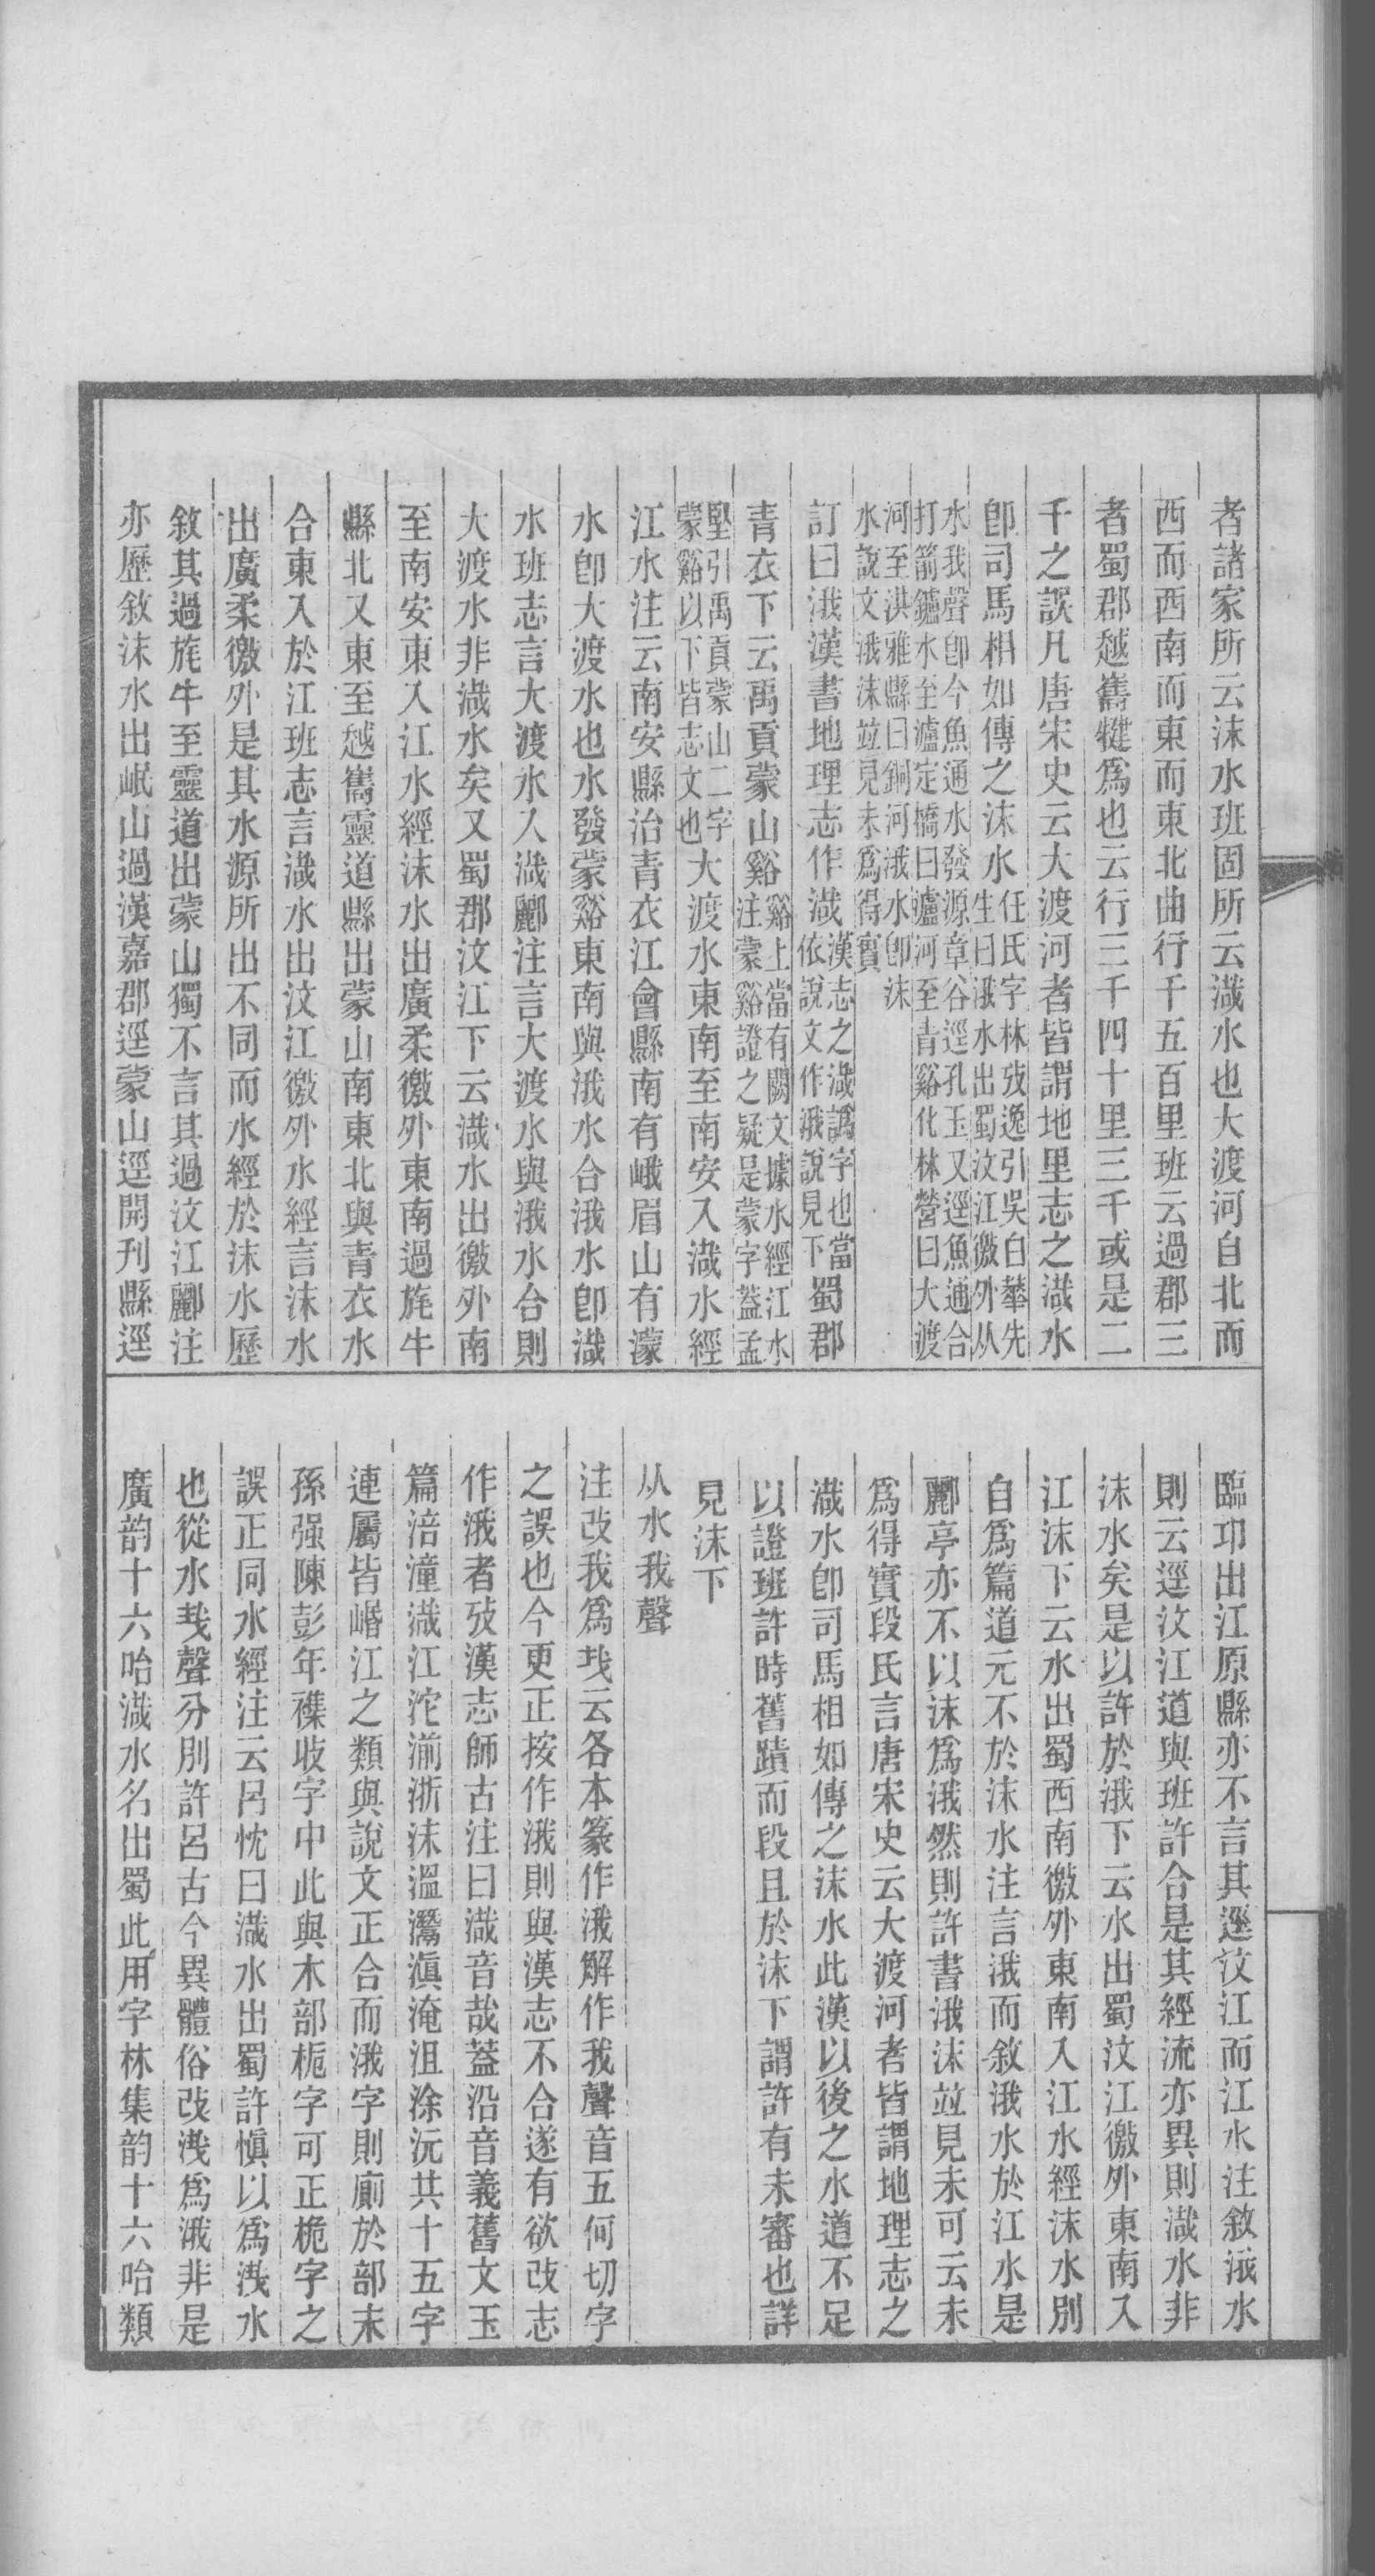 者諸家所云沫水班固所云渽水也大渡河自北而
西而西南而東而東北曲行千五百里班云過郡三
者蜀郡越嶲犍爲也云行三千四十里三千或是二
千之誤凡唐宋史云大渡河者皆謂地里志之渽水
卽司馬相如傳之沫水任氏字林攷逸引吳白華先
生曰涐水出蜀汶江徼外从
水我聲卽今魚通水發源章谷逕孔玉又逕魚通合
打箭鑪水至瀘定橋曰瀘河至青谿化林營曰大渡
河至洪雅縣曰銅河涐水卽沫
水說文涐沫竝見未爲得實
訂曰涐漢書地理志作渽漢志之渽譌字也當
依說文作涐說見下蜀郡
青衣下云禹貢蒙山谿谿上當有闕文據水經江水
注蒙谿證之疑是蒙字蓋孟
堅引禹貢蒙山二字
蒙谿以下皆志文也大渡水東南至南安入渽水經
江水注云南安縣治青衣江會縣南有峨眉山有濛
水卽大渡水也水發蒙谿東南與涐水合涐水卽渽
水班志言大渡水入渽酈注言大渡水與涐水合則
大渡水非渽水矣又蜀郡汶江下云渽水出徼外南
至南安東入江水經沫水出廣柔徼外東南過旄牛
縣北又東至越嶲靈道縣出蒙山南東北與青衣水
合東入於江班志言渽水出汶江徼外水經言沫水
出廣柔徼外是其水源所出不同而水經於沫水歷
敘其過旄牛至靈道出蒙山獨不言其過汶江酈注
亦歷敘沫水出岷山過漢嘉郡逕蒙山逕開刊縣逕
臨邛出江原縣亦不言其逕汶江而江水注敘涐水
則云逕汶江道與班許合是其經流亦異則渽水非
沫水矣是以許於涐下云水出蜀汶江徼外東南入
江沫下云水出蜀西南徼外東南入江水經沫水別
自爲篇道元不於沫水注言涐而敘涐水於江水是
酈亭亦不以沫爲涐然則許書涐沫竝見未可云未
爲得實段氏言唐宋史云大渡河者皆謂地理志之
渽水卽司馬相如傳之沫水此漢以後之水道不足
以證班許時舊蹟而段且於沫下謂許有未審也詳
見沫下
从水我聲
注改我爲𢦏云各本篆作涐解作我聲音五何切字
之誤也今更正按作涐則與漢志不合遂有欲改志
作涐者攷漢志師古注曰渽音哉蓋沿音義舊文玉
篇涪潼渽江沱湔浙沫溫灊滇淹沮涂沅共十五字
連屬皆崏江之類與說文正合而涐字則廁於部末
孫强陳彭年襍收字中此與木部梔字可正桅字之
誤正同水經注云呂忱曰渽水出蜀許愼以爲洅水
也從水𢦏聲分別許呂古今異體俗改洅爲涐非是
廣韵十六咍渽水名出蜀此用字林集韵十六咍類